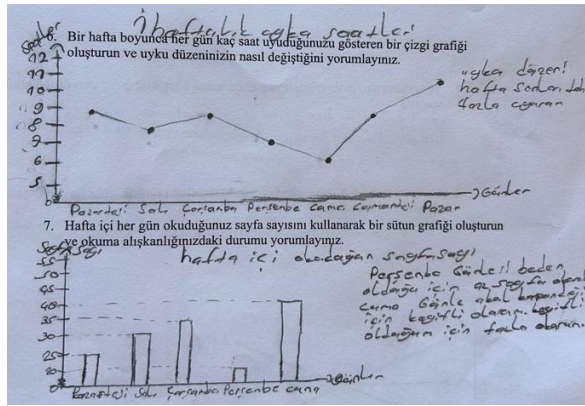 haftalık uyku saatleri
6. Bir hafta boyunca her gün kaç saat uyuduğunuzu gösteren bir çizgi grafiği
oluşturun ve uyku düzeninizin nasıl değiştiğini yorumlayınız.
12
11
10
9
8
7
6
5
0
uyku düzeni
hafta sonları daha
fazla uyuram
Pazartesi Salı Çarşamba Perşenbe Cuma Cumartesi Pazar
Günler
7. Hafta içi her gün okuduğunuz sayfa sayısını kullanarak bir sütun grafiği oluşturun
ve okuma alışkanlığınızdaki durumu yorumlayınız.
hafta içi okuduğun sayfasayı
55
50
45
40
35
30
25
20
0
Perşenbe Günleri beden
olduğu için az sayfa
cuma Günle okul kapandığı
için keyifli olurum keyifli
olduğum için fazla okurum
Pazartesi Salı Çarşamba Perşenbe cuma
Günler